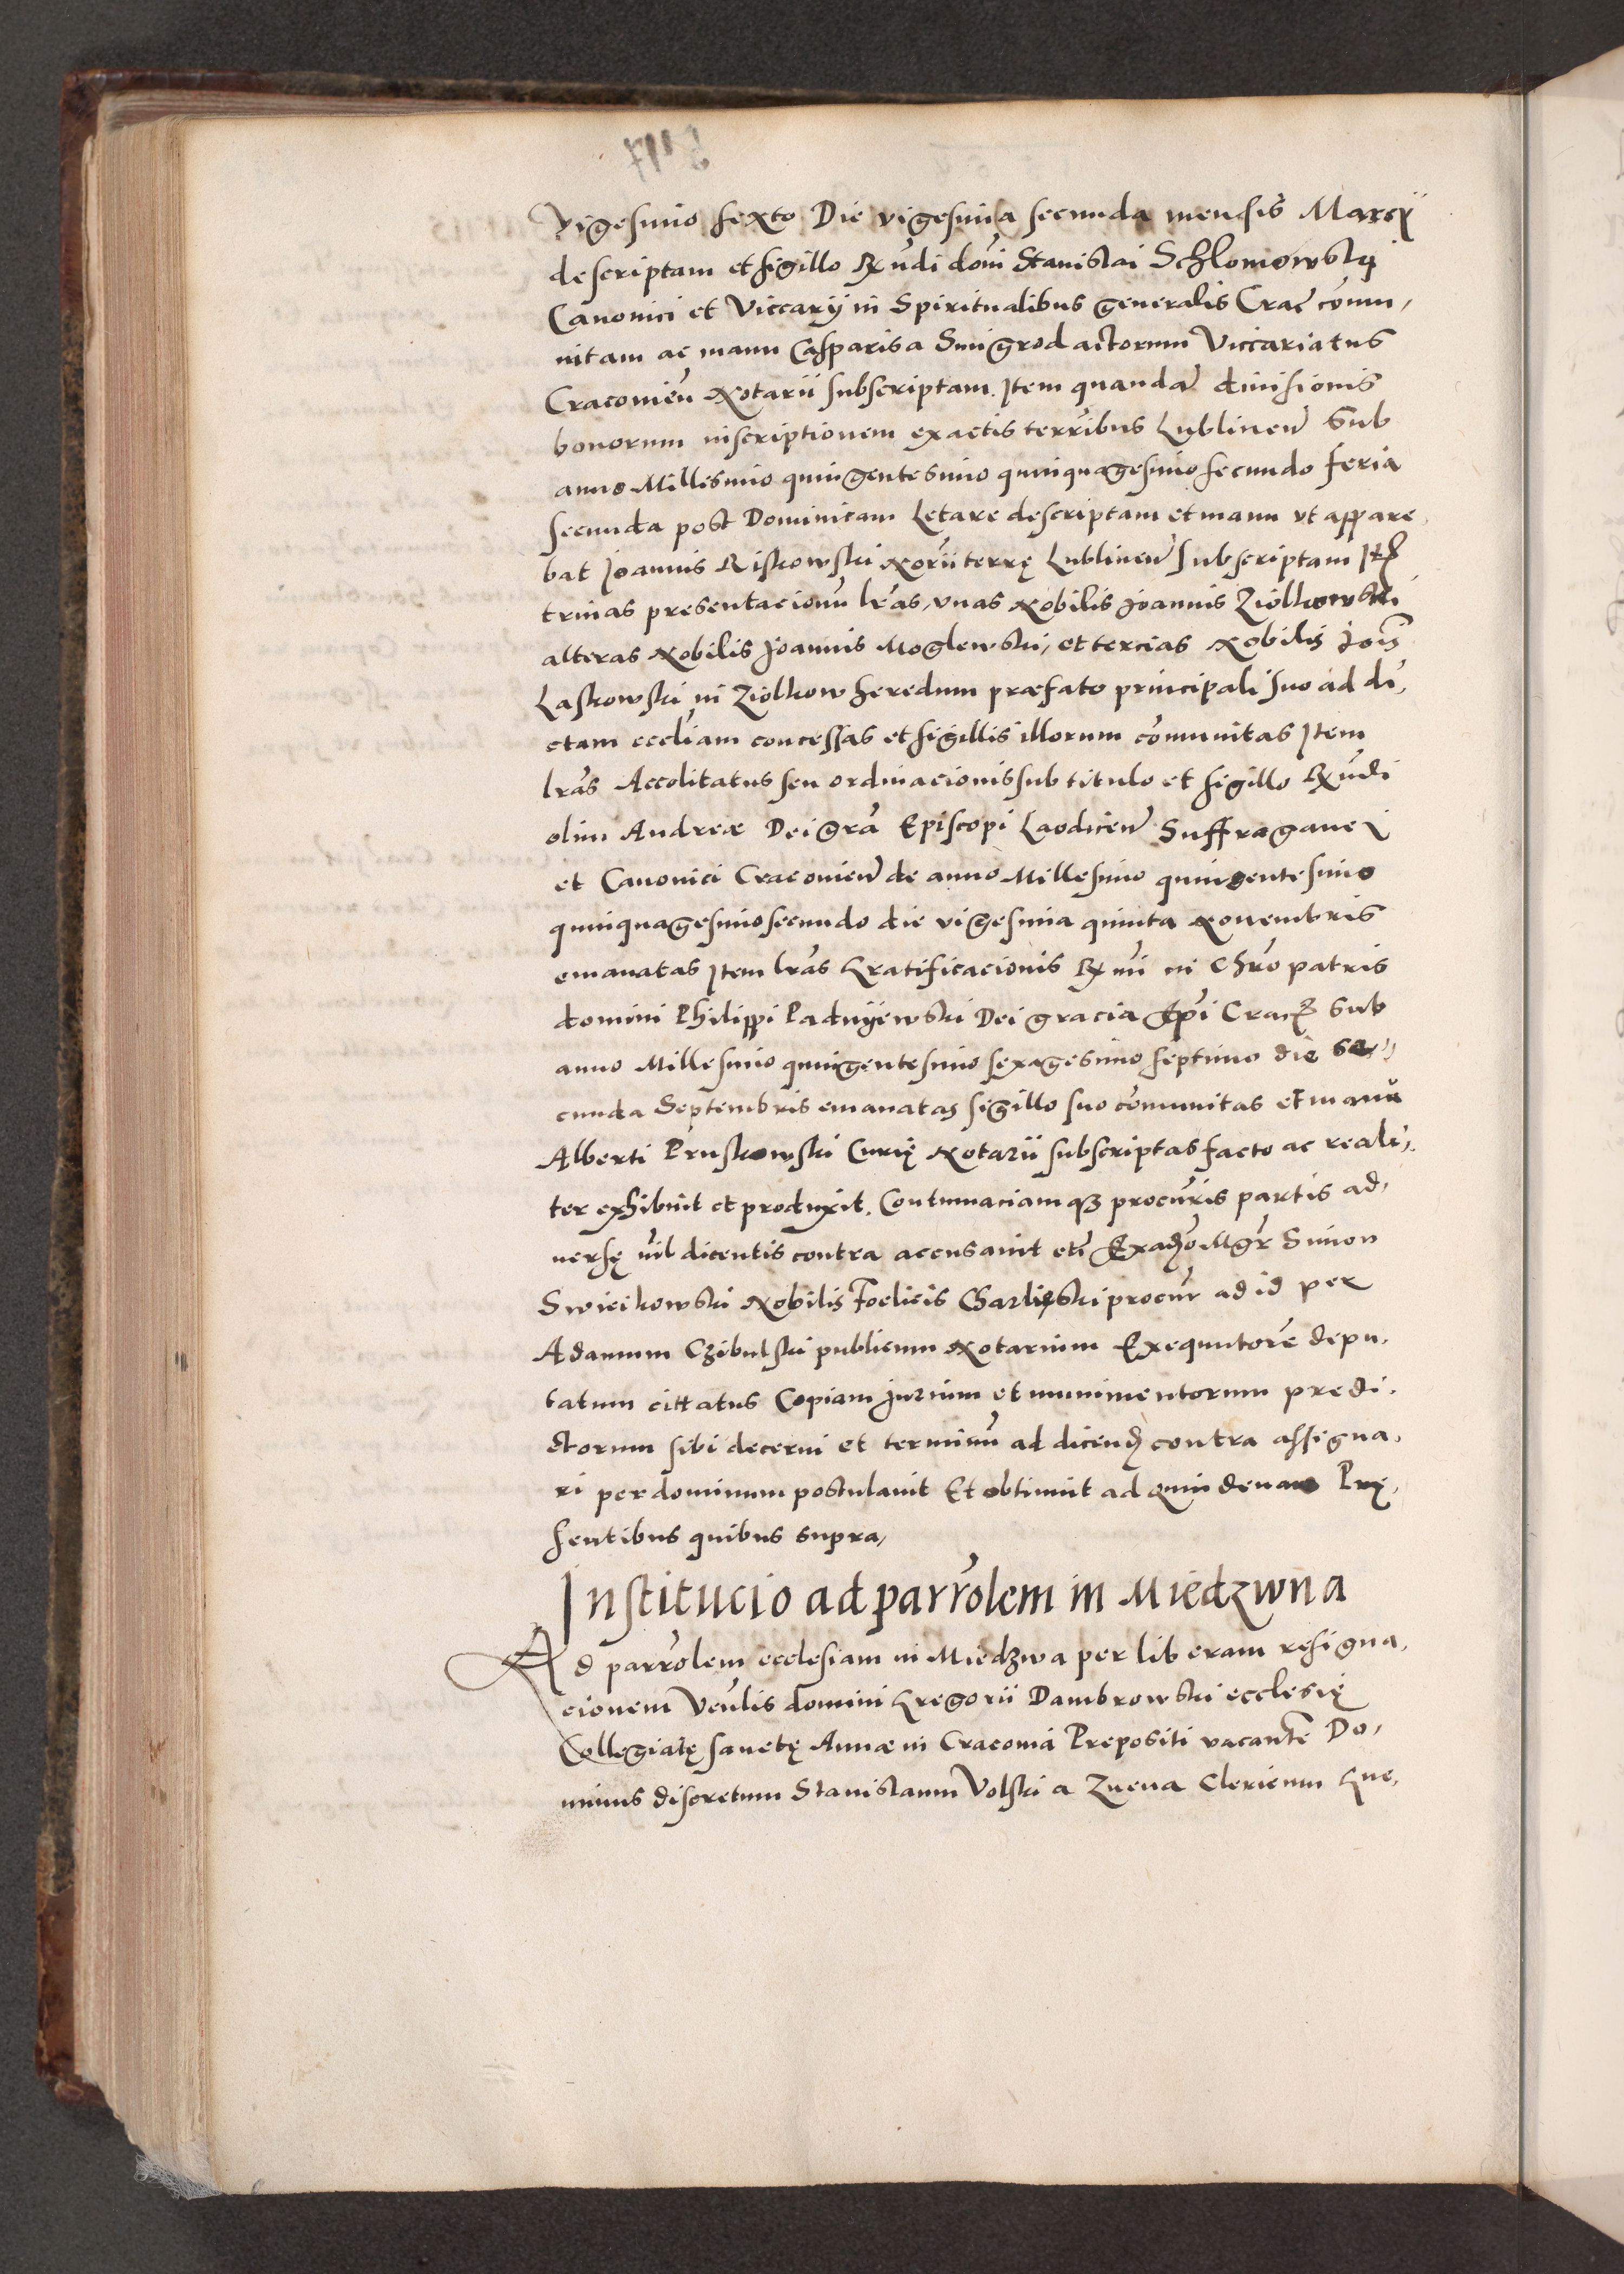 Vigesimo sexto Die vigesima secunda mensis Marcÿ
descriptam et sigillo Rṽndi dom̃i Stanislai Schlomowskÿ
Canonici et Viccarÿ in Spiritualibus generalis Crac̃ com̃u,
nitam ac manu Casparis a Smigrod actorum Viccariatus
Cracovieñ Notarii subscriptam. Item quandã divisionis
bonorum inscriptionem ex actis terr̃ibus Lublineñ Sub
anno Millesimo quingentesimo quinquagesimo secundo feria
secunda post Dominicam Letare descriptam et manu vt appare
bat Joannis Riskowski Nor̃ii terrę Lublineñ subscriptam Itẽ
trinas presentacionũ lr̃as, vnas Nobilis Joannis Ziolkowski
alteras Nobilis Joannis Moglewski, et tercias Nobilis Jois̃
Laskowski in Ziolkow heredum præfato principali suo ad di,
ctam eccliam̃ concessas et sigillis illorum com̃unitas Item
lr̃as Accolitatus seu ordinacionis sub titulo et sigillo Rṽndi
olim Andreæ Dei gr̃a Episcopi Laodiceñ Suffraganei
et Canonici Cracovieñ de anno Millesimo quingentesimo
quinquagesimo secundo die vigesima quinta Novembris
emanatas Item lr̃as Gratificacionis Rm̃i in Chr̃o patris
domini Philippi Padnÿewski Dei gracia Ep̃i Crac̃ Sub
anno Millesimo quingentesimo sexagesimo septimo die se,
cunda Septembris emanatas sigillo suo com̃unitas et manu
Alberti Pruskowski Curię Notarii subscriptas facto ac reali,
ter exhibuit et produxit. Contumaciamqȝ procur̃is partis ad,
versę nil dicentis contra accusavit et Ex ad̃o Mgr̃ Simon
Swieikowski Nobilis Foelicis Charlięski procur̃ ad id per
Adamum Czibulski publicum Notarium Exequutorẽ depu,
tatum cittatus Copiam jurium et munimentorum predi,
ctorum sibi decerni et terminũ ad dicend̃ contra assigna,
ri per dominum postulavit Et obtinuit ad quindenam Prę,
sentibus quibus supra,
Institucio ad parr̃olem in Miedzwna
Ad parr̃olem ecclesiam in Miedzwa per liberam resigna,
cionem Veñlis domini Gregorii Dambrowski ecclesię
Collegiatę sanctę Annæ in Cracovia Prepositi vacantẽ Do,
minus discretum Stanislaum Volski a Zuena Clericum Gne,